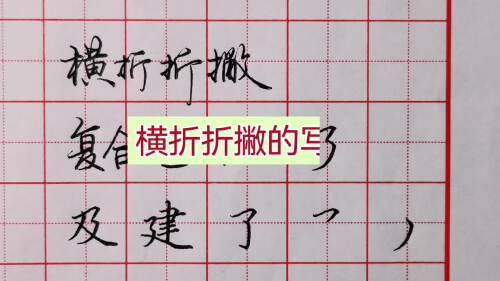 横折折撇
复合
横折折撇的写
及 建